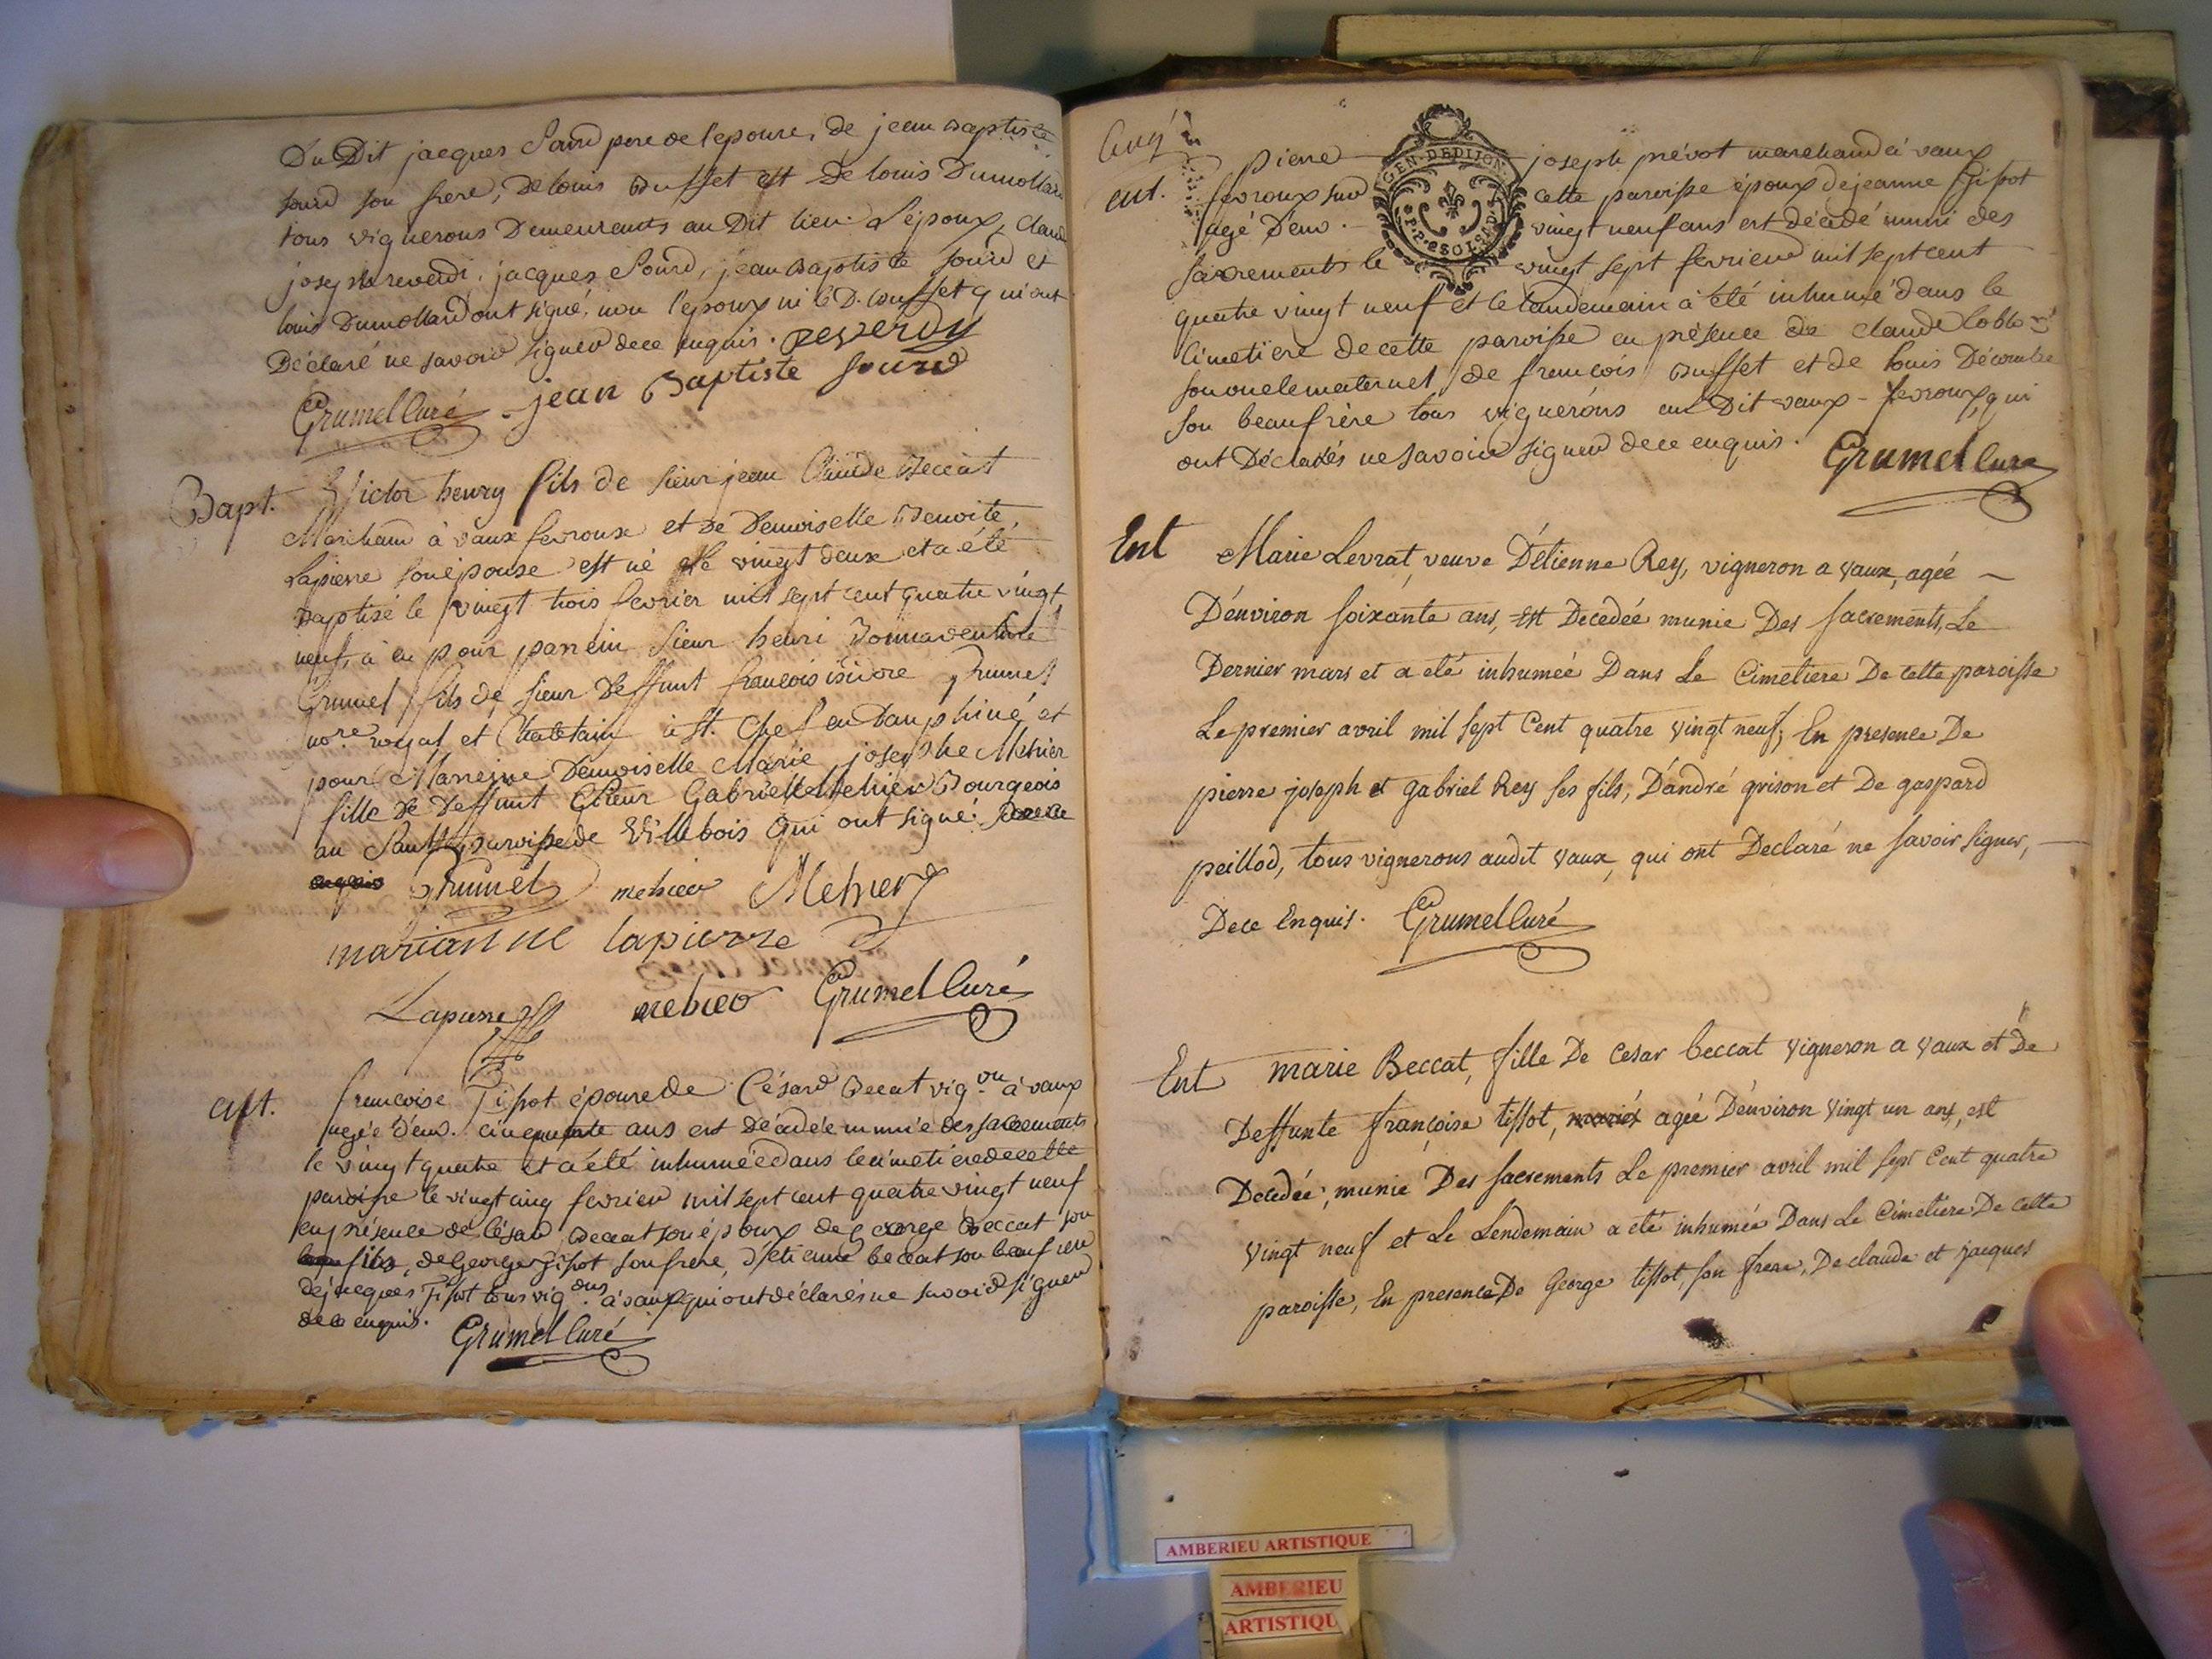 Du Dit jacques Sourd pere de l'epouse, de jean Baptiste
sourd son frere, De louis Buffet et De louis Dumollard
tous vignerons Demeurants au Dit lieu. L'époux, claude
joseph reverdi, jacques Sourd, jean Baptiste sourd et
louis Dumollard ont signé, non l'epoux ni le D. buffet qui ont
Déclaré ne savoir signer de ce enquis. reverdy
Grumel Curé jean Baptiste sourd
Bapt. Victor henry fils de sieur jean Claude Beccat
Marchand à vaux fevroux et de Demoiselle Benoite
Lapierre son épouse est né le vingt deux et a été
baptisé le vingt trois fevrier mil sept cent quatre vingt
neuf, a eu pour parrein sieur henri Bonnaventure
Grumel fils de sieur Deffunt francois isidore Grumel
nore. royal et Chatelain à st. Chef en Dauphiné, et
pour Marreine Demoiselle Marie josephe Mehier
fille de Deffunt Sieur Gabriel Mehier Bourgeois
au Sault paroisse de Villebois qui ont signé. De ce
enquis Grumel mehier Mehier
marianne lapierre
Lapierre mehier Grumel Curé
ent. francoise Tissot épouse de César Beccat vig.on à vaux
agée d'env. cinquante ans est décédée munie des sacrements
le vingt quatre et a été inhumée dans le cimetière de cette
paroisse le vingt cinq fevrier mil sept cent quatre vingt neuf
en présence de César Beccat son époux de george Beccat son
fils, de George Tissot son frere, d'etienne beccat son beaufrere
de jacques Tissot tous vig.ons à vaux qui ont déclarés ne savoir signer
de ce enquis. Grumel Curé
Cinq
GEN. DE DIJON
P. P. 2 SOLS 4 D.
Pierre joseph prévot marchand à vaux
ent. fevroux sur cette paroisse époux de jeanne Tissot
agé D'env. vingt neuf ans est décédé muni des
sacrements le vingt sept fevrier mil sept cent
quatre vingt neuf et le landemain à été inhumé dans le
Cimetiere de cette paroisse en présence de claude
son oncle maternel de francois Buffet et de louis Décombe
son beaufrère tous vignerons au Dit vaux - fevroux, qui
ont Déclarés ne savoir signer de ce enquis. Grumel Curé
Ent Marie Levrat, veuve D'étienne Rey, vigneron a vaux, agée
D'environ soixante ans, Est Decedée munie Des sacrements, Le
Dernier mars et a eté inhumée Dans Le Cimetiere De cette paroisse
Le premier avril mil sept Cent quatre vingt neuf, En presence De
pierre joseph et gabriel Rey ses fils, D'andré grison et De gaspard
peillod, tous vignerons audit vaux, qui ont Declaré ne savoir signer,
De ce Enquis. Grumel Curé
Ent marie Beccat, fille De Cesar beccat vigneron a vaux et De
Deffunte françoise tissot, mariés agée D'environ vingt un ans, est
Decedée, munie Des sacrements Le premier avril mil sept Cent quatre
vingt neuf et Le Lendemain a eté inhumée Dans Le Cimetiere De cette
paroisse, En presence De George tissot, son frere, De claude et jacques
AMBERIEU ARTISTIQUE
AMBERIEU
ARTISTIQU